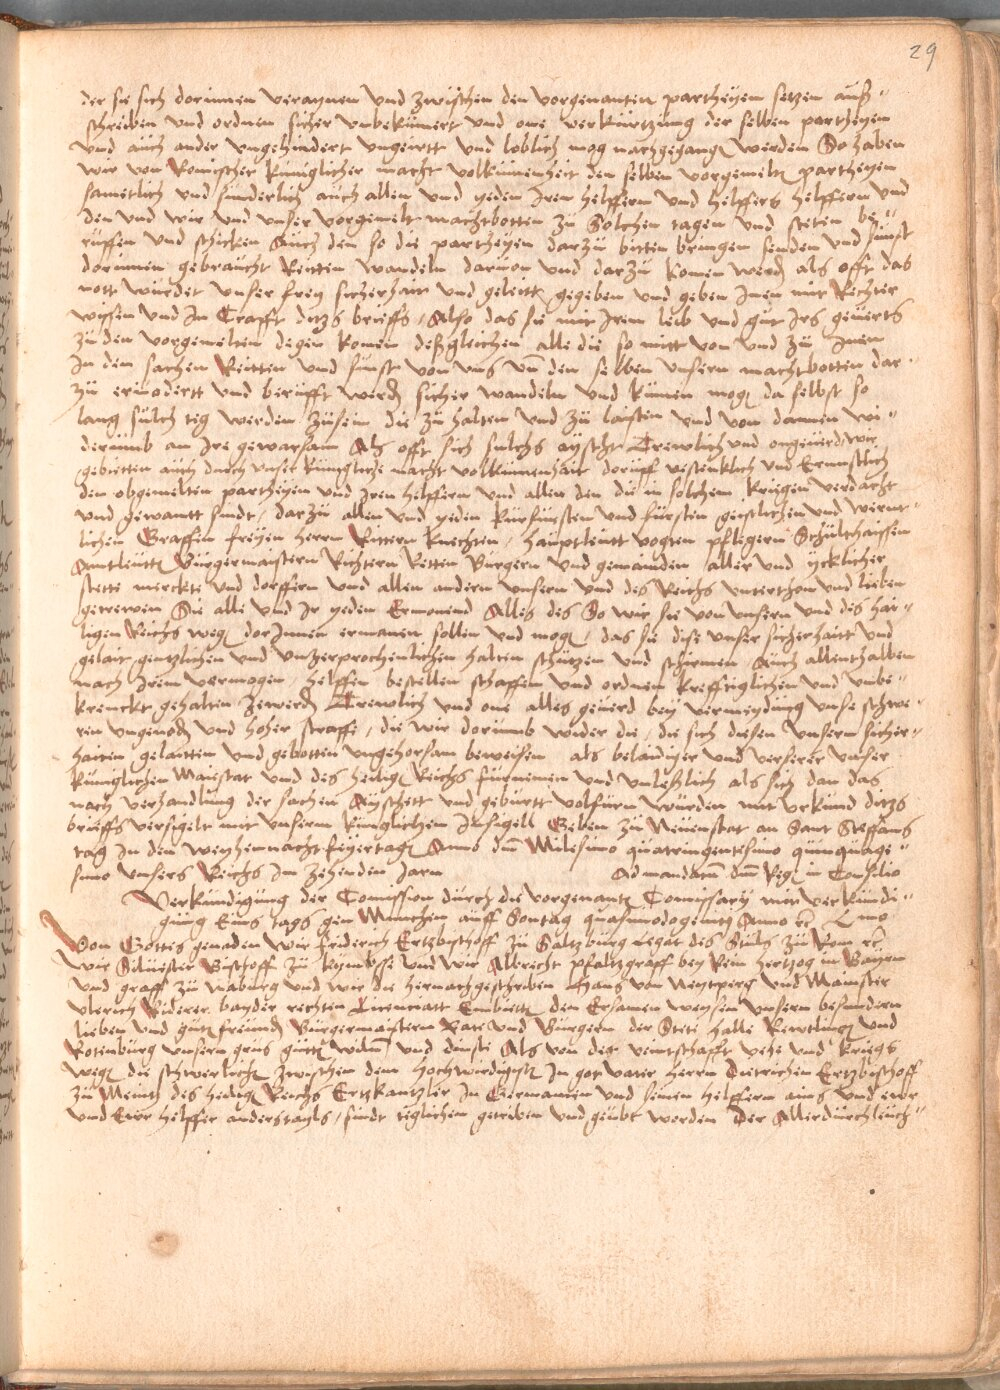 29
der sie sich dorinnen veraynen vnd zwischen den vorgenanten partheyen setzen auß-
schreiben vnd ordnen sicher vnbekumert vnd one verkurtzung der selben partheyen
vnd auch ander vngehindert vngeirtt vnd loblich mog nachgegangen werden So haben
wir von Romischer kuniglicher macht volkumenheit den selben vorgemelten partheyen
sametlich vnd sunderlich auch allen vnd yeden Iren helffern vnd helffers helffern vnd
den vnd wir vnd vnser vorgemelt machtbotten zu Solchen tagen vnd steten be-
ruffen vnd schicken Auch den so die partheyen darzu bitten bringen senden vnd sunst
dorinnen gebraucht Reitten wandeln daruon vnd darzu komen werden als offt das
nott wurdet vnser frey sicherhait vnd geleitt gegeben vnd geben Inen mit Rechter
wissen vnd In Crafft ditzs brieffs / Also das sie mit Irem leib vnd gut Irs geuerts
zu den vorgemelten degen komen deßgleichen alle die so mitt von vnd zu Inen
In den sachen Reitten vnd sunst von vns vnd den selben vnsern machtbotten dar-
zu eruodertt vnd berufft werden sicher wandeln vnd kumen mogen da selbst so
lang sulch teg werden zusein die zu halten vnd zu laisten vnd von dannen wi-
derumb an Ire gewarsam Als offt sich sulchs ayscht Trewlich vnd ongeuerd wir
gebietten auch durch vnser kunigliche macht volkumenhait doruff vestenklich vnd Ernnstlich
den obgemelten partheyen vnd Iren helffern vnd allen den die in solchem krigen verdacht
vnd gewantt sindt / darzu allen vnd yeden kurfursten vnd fursten geistlichen vnd wernt-
lichen Graffen freyen herrn Rittern knechten / hauptleutt vogten pflegern Schulthaissen
Amtleutt Burgermaistern Richtern Retten Burgern vnd gemainden aller vnd ycklicher
stette merckte vnd dorffern vnd allen andern vnsern vnd des Reichs vnterthon vnd lieben
getrewen Sie alle vnd Ir yeden Ermonend Alles des So wir sie von vnsern vnd des hai-
ligen Reichs wegen dorInnen ermanen sollen vnd mogen / das sie dise vnser sicherhait vnd
gelait gentzlichen vnd vnzerprochenlichen halten schutzen vnd schirmen Auch allenthalben
nach Irem vermogen / helffen bestellen schaffen vnd ordnen krefftiglichen vnd vnbe-
krenckt gehalten zewerden Trewlich vnd one alles geuerd bey vermeydung vnser schwe-
ren vngenoden vnd hoher straffe / die wir dorumb wider die / die sich diesen vnsern sicher-
haiten gelaitten vnd gebotten vngehorsam beweisen als belaidiger vnd verserer vnser
kuniglichen Maiestat vnd des heiligen Reichs furnemen vnd vnleßlich als sich dan das
nach verhandlung der sachen Ayschett vnd geburtt volfurn wurden mit vrkund ditzs
brieffs versigelt mit vnserm kuniglichen Insigell Geben zu Neuenstat an Sant Steffans
tag In den weyhennacht feyertagen Anno dni Milesimo quatringentesimo quinquage-
simo vnsers Reichs Im zehenden Jarn Ad mandatum dni Regis in Consilio
Verkundigung der Comission durch die vorgenantn Comissary mit verkundi-
gung Eins tags gen Munchen auff Sontag quasimodogeniti Anno etc Lmo
Von Gottes genaden wir friderich Ertzbischoff zu Saltzburg Legat des Stuls zu Rom etc
wir Siluester Bischoff zu kymbsse vnd wir Albrecht pfaltzgraff bey Rein hertzog in Bayrn
vnd graff zu Naburg vnd wir die hernachgeschriben Hans von Neytperg vnd Maister
Vlrich Riderer bayder rechten Licenciatt Embietten den Ersamen weysen vnsern besundern
lieben vnd guten freunden Burgermaistern Rate vnd Burgern der Stete Halle Rewtlingen vnd
Rotenburg vnsern grus guten willn vnd dinst Als von der veintschafft vehe vnd kriegs
wegen die schwerlichen zwischen dem hochwirdigisten In got vater herrn Dietrichen Ertzbischoff
zu Meintz des heiligen Reichs Ertzkantzler In Germanien vnd seinen helffern ains vnd ewr
vnd Ewr helffer anderstayls / sindt teglichen getriben vnd geubt worden Der Allerdurchleuch-